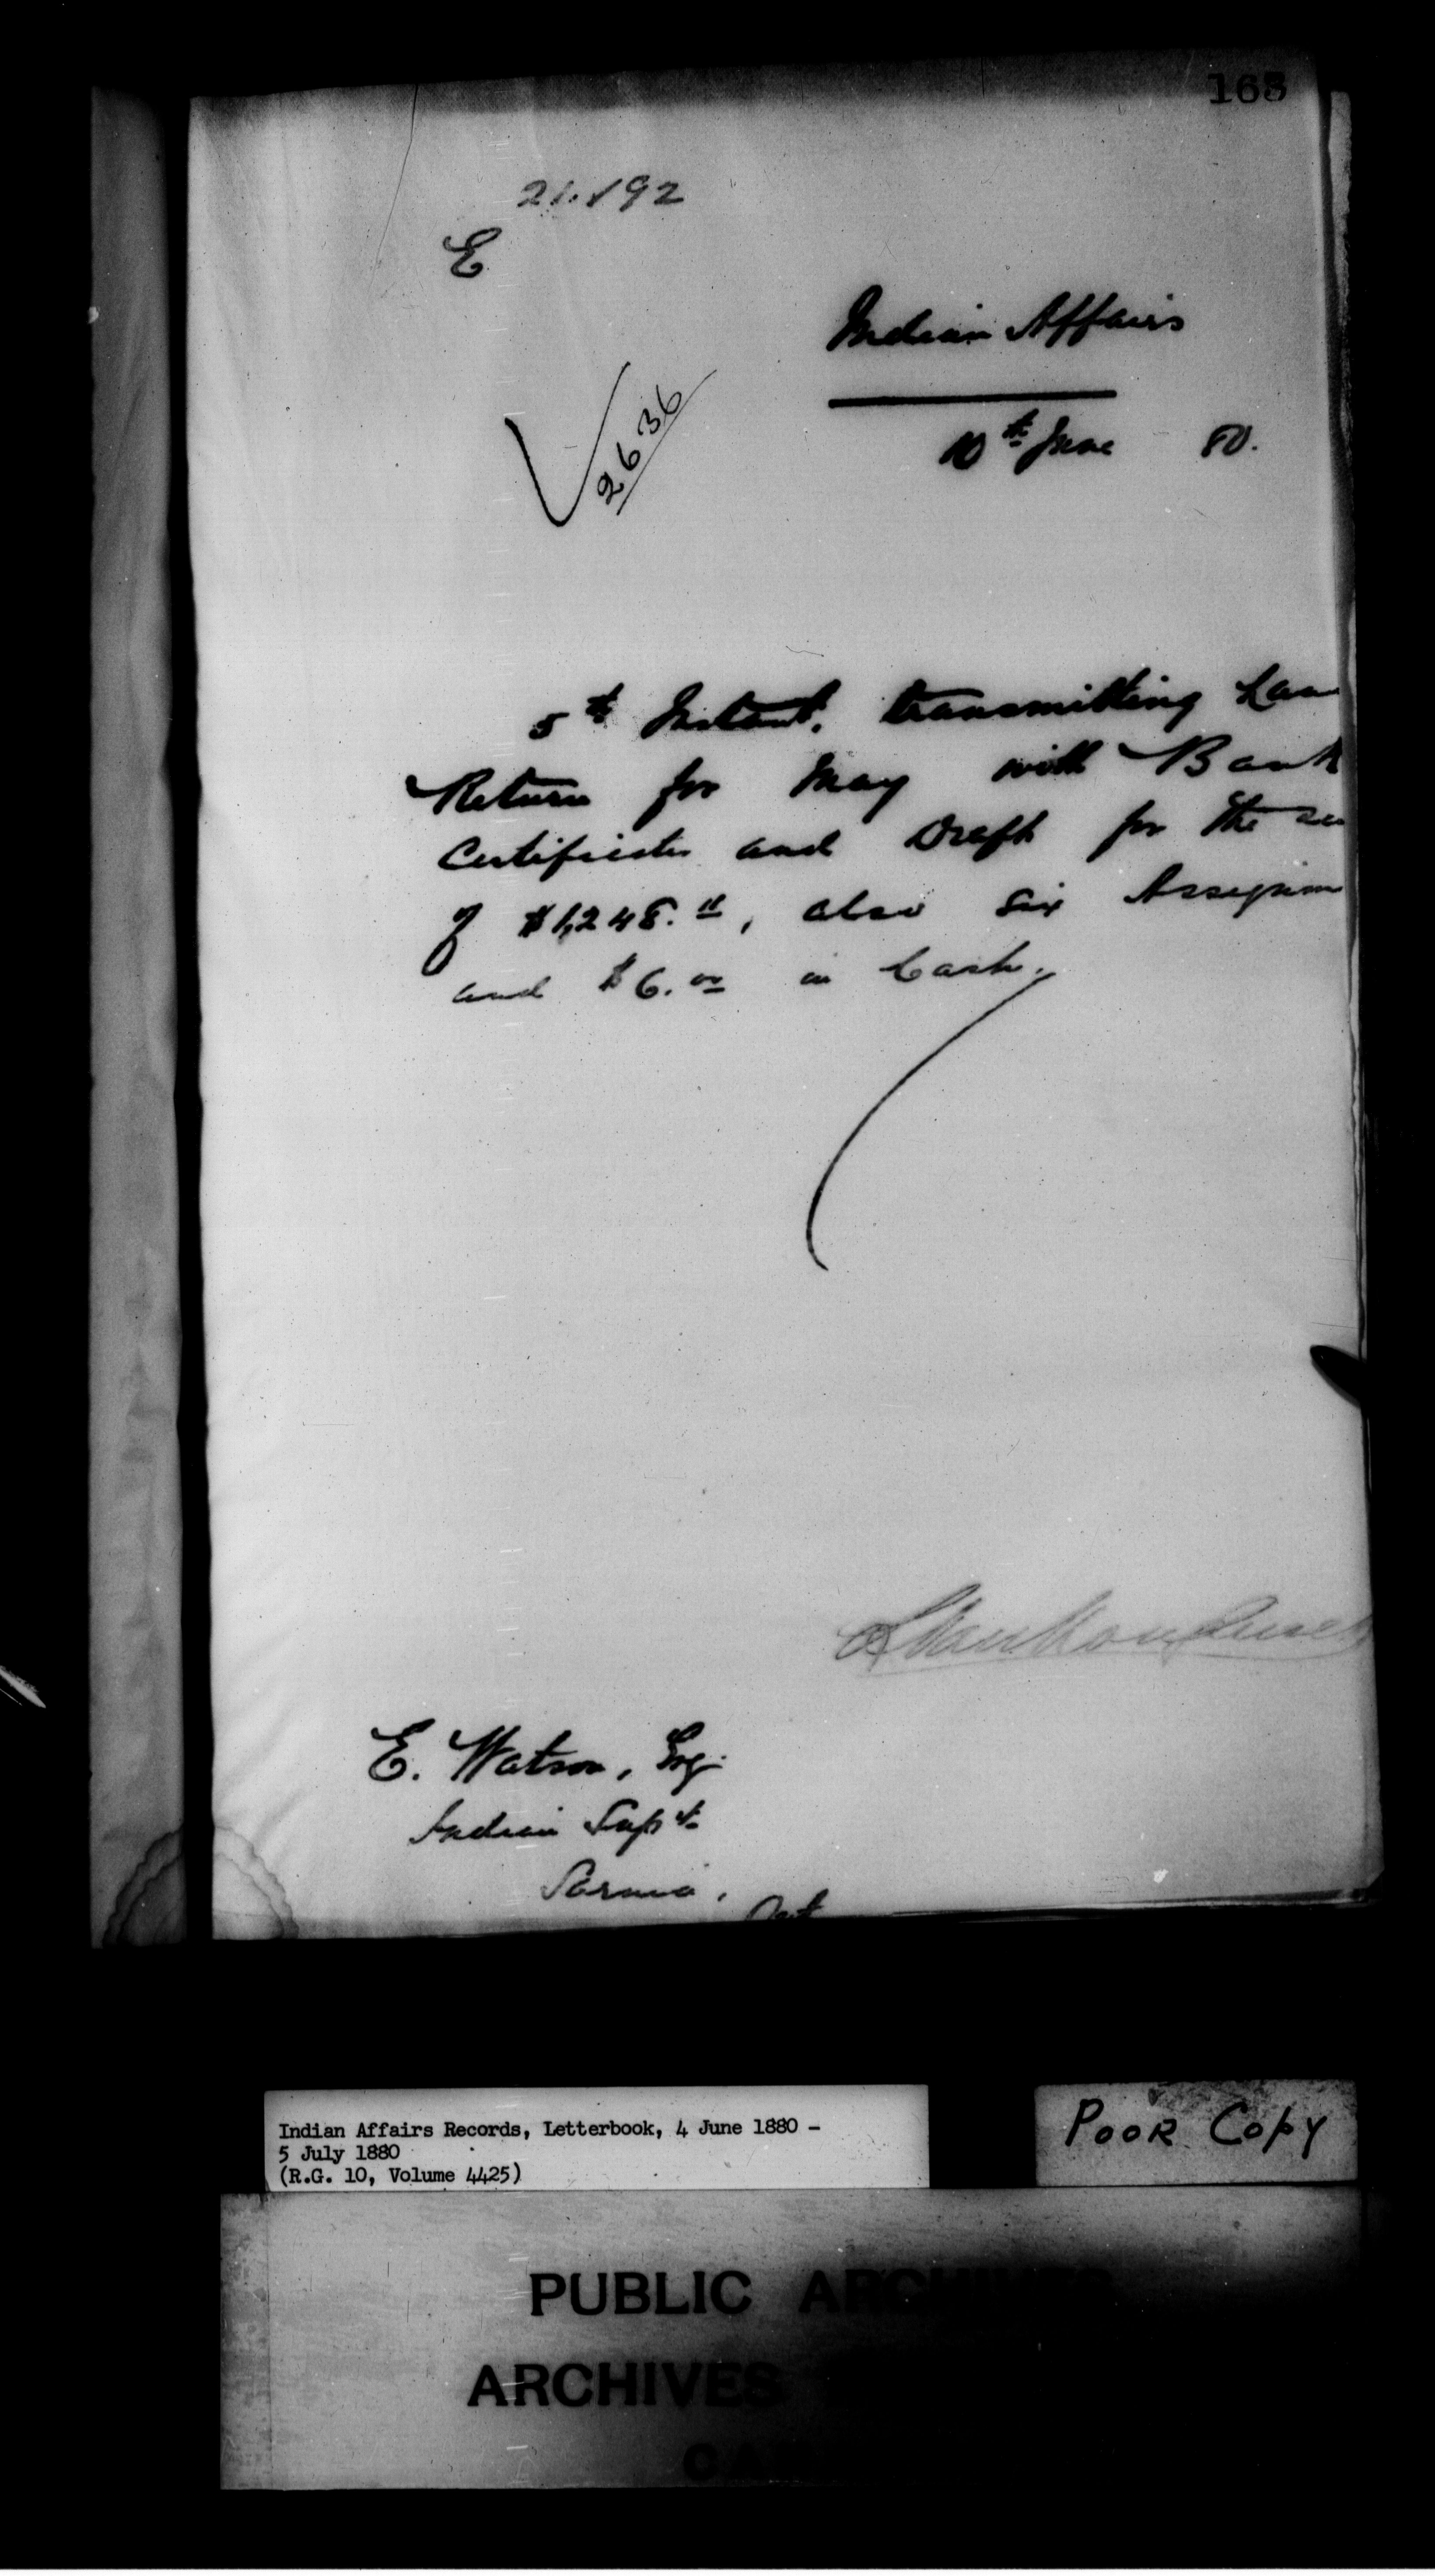 168
21.192
E
Indian Affairs
2636
10th June 80.
5th Instant, transmitting Lan
Return for May with Bank
Certificates and Draft for the su
of $1,248.11, also six Assignm
and $6.00 in Cash.
L Vankoughnet
E. Watson, Esq.
Indian Supt.
Sarnia,
Ont
Indian Affairs Records, Letterbook, 4 June 1880 -
5 July 1880
(R.G. 10, Volume 4425)
POOR COPY
PUBLIC ARCHIVES
ARCHIVES
CA